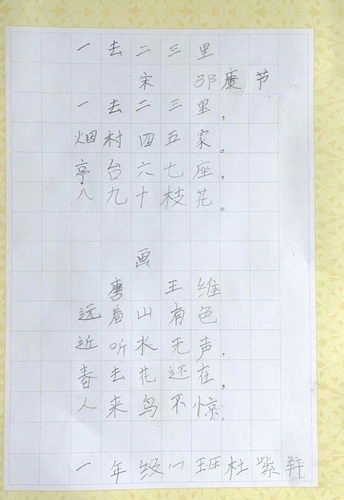 一去二三里
宋 邵康节
一去二三里,
烟村四五家。
亭台六七座,
八九十枝花。
画
唐 王维
远看山有色
近听水无声.
春去花还在,
人来鸟不惊.
一年级(一)班杜紫